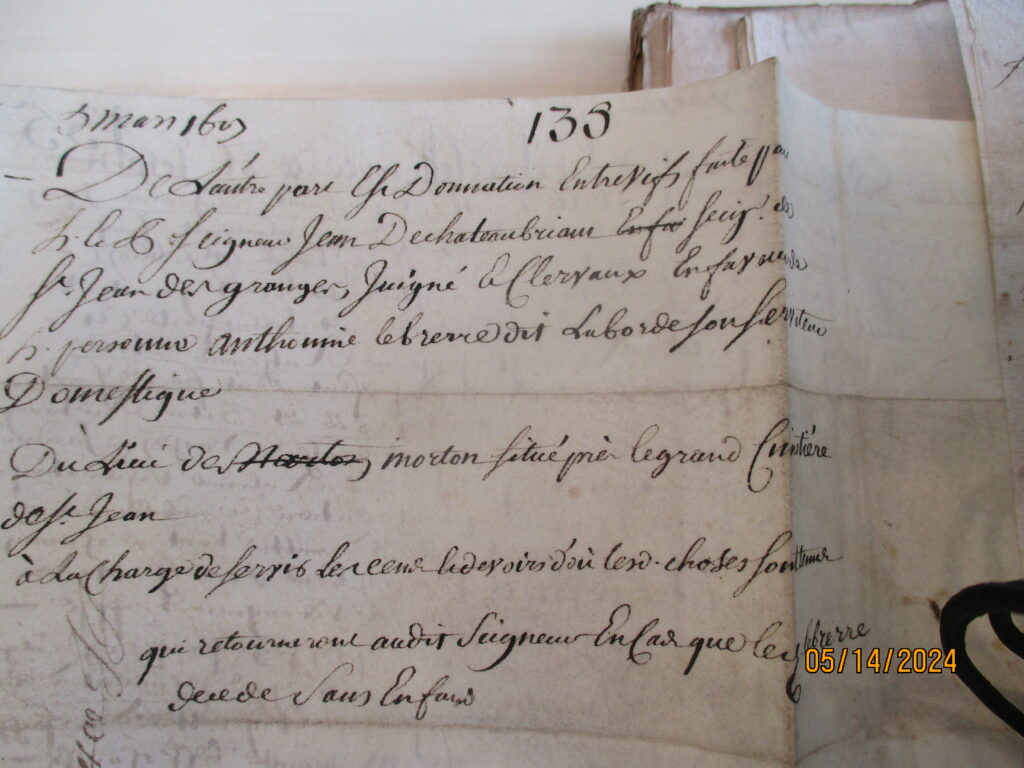 5 mars 160
138
De Lautre part Est Donnation Entrevifs faitte par
h. & p. seigneur Jean Dechateaubriant Enfa seigr. des
St. Jean des granges, Juigné & Clervaux En faveur de
h. personne anthoinne lebrerre dit Laborde son serviteur
Domestique
Du Lieu de Morton morton situé près le grand Cimtière
de St. Jean
à La Charge de servir les cens & devoirs d'où lesd. choses sont tenue
qui retourneront audit Seigneur En Cas que led. lebrerre
decede Sans Enfans
05/14/2024